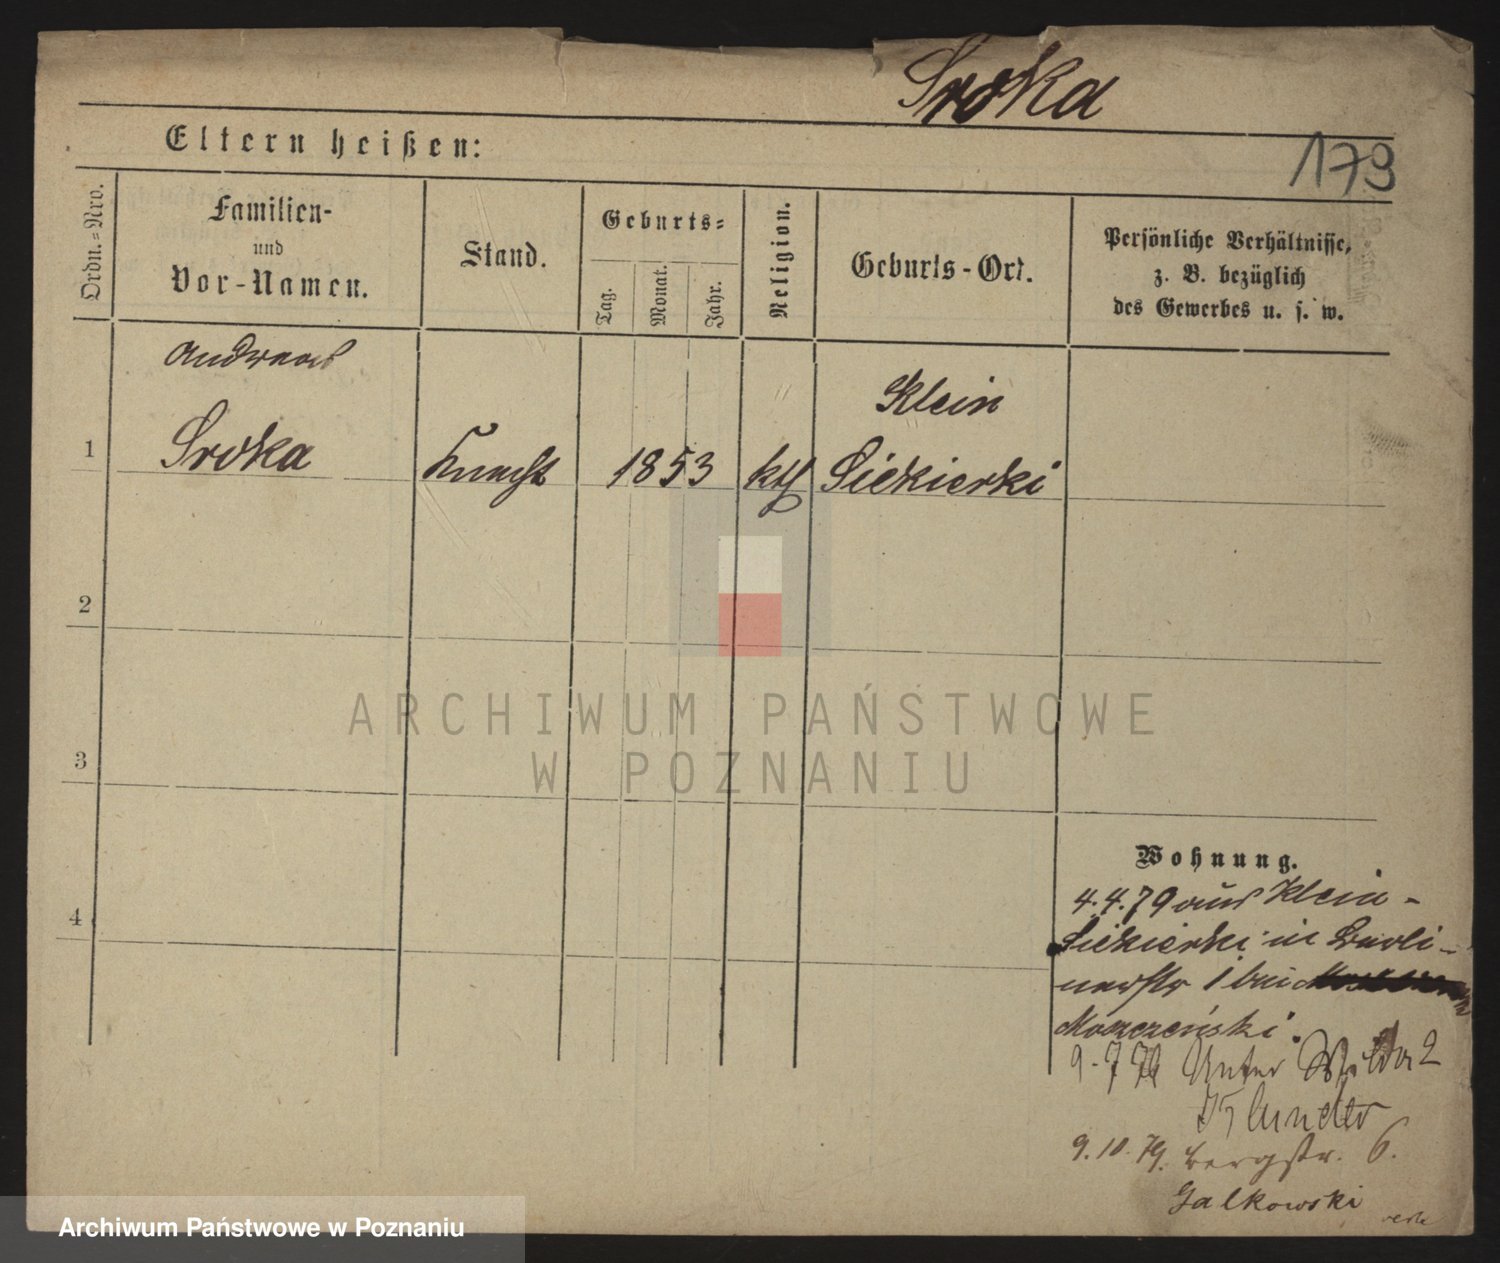 Sroka
179
Eltern heißen:
Ordn.-Nro.
Familien-
und
Vor-Namen.
Stand.
Geburts-
Tag.
Monat.
Jahr.
Religion.
Geburts-Ort.
Persönliche Verhältnisse,
z. B. bezüglich
des Gewerbes u. s. w.
Andreas
Klein
1
Sroka
Knecht
1853
kth
Siekierki
2
3
4
Wohnung.
4.4.79 aus Klein-
Siekierki in Berli-
nerstr 1 bei
Moszczeński.
9.7.79 Unter Wilda 2
9.10.79. Bergstr. 6.
Galkowski
ARCHIWUM PAŃSTWOWE
W POZNANIU
Archiwum Państwowe w Poznaniu